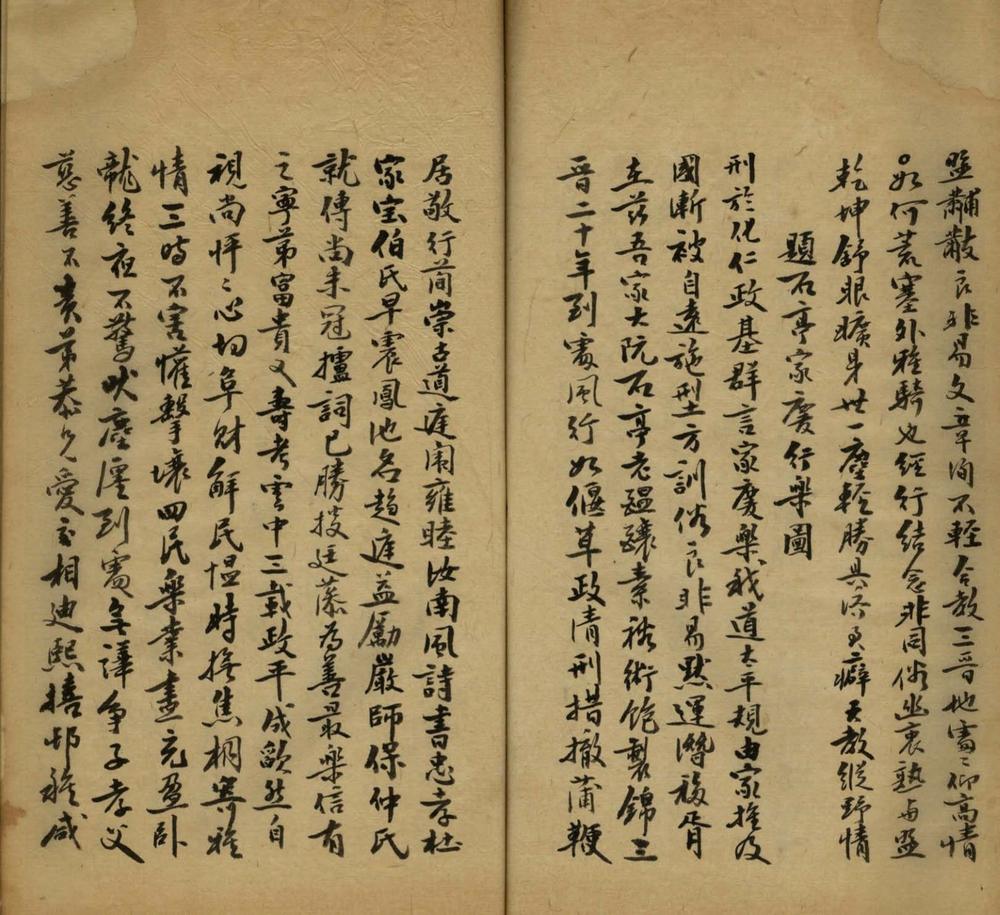 盟黼黻良非易文章洵不輕合教三晉地處處仰高情
如何荖塞外雅騎也經行結念非同俗幽衷熟與盟
乾坤舒眼曠身世一塵輕勝具濟癖天教縱野情
題石亭家慶行樂圖
刑於化仁政基群言家慶樂我道太平規由家推及
國漸被自遠施型方訓俗良非易默運潛移胥
在茲吾家大阮石亭老韞釀素裕術飽製錦三
晉二十年到處風行如偃草政清刑措撤蒲鞭
居敬行簡崇古道庭闈雍睦汝南風詩書忠孝杜
家宝伯氏早震鳳池名趨庭益勵嚴師保仲氏
就傅尚未冠攄詞已勝掞廷藻為善最樂信有
之寧第富貴又壽考雲中三載政平成歆然自
視尚怦怦心切阜財解民慍時撫焦桐寄雅
情三時不害懽擊壤四民樂業晝充盈臥
龍終夜不驚吠塵廛到處無譁爭子孝父
慈善不責弟恭兄愛互相迪熙攘邨稚咸